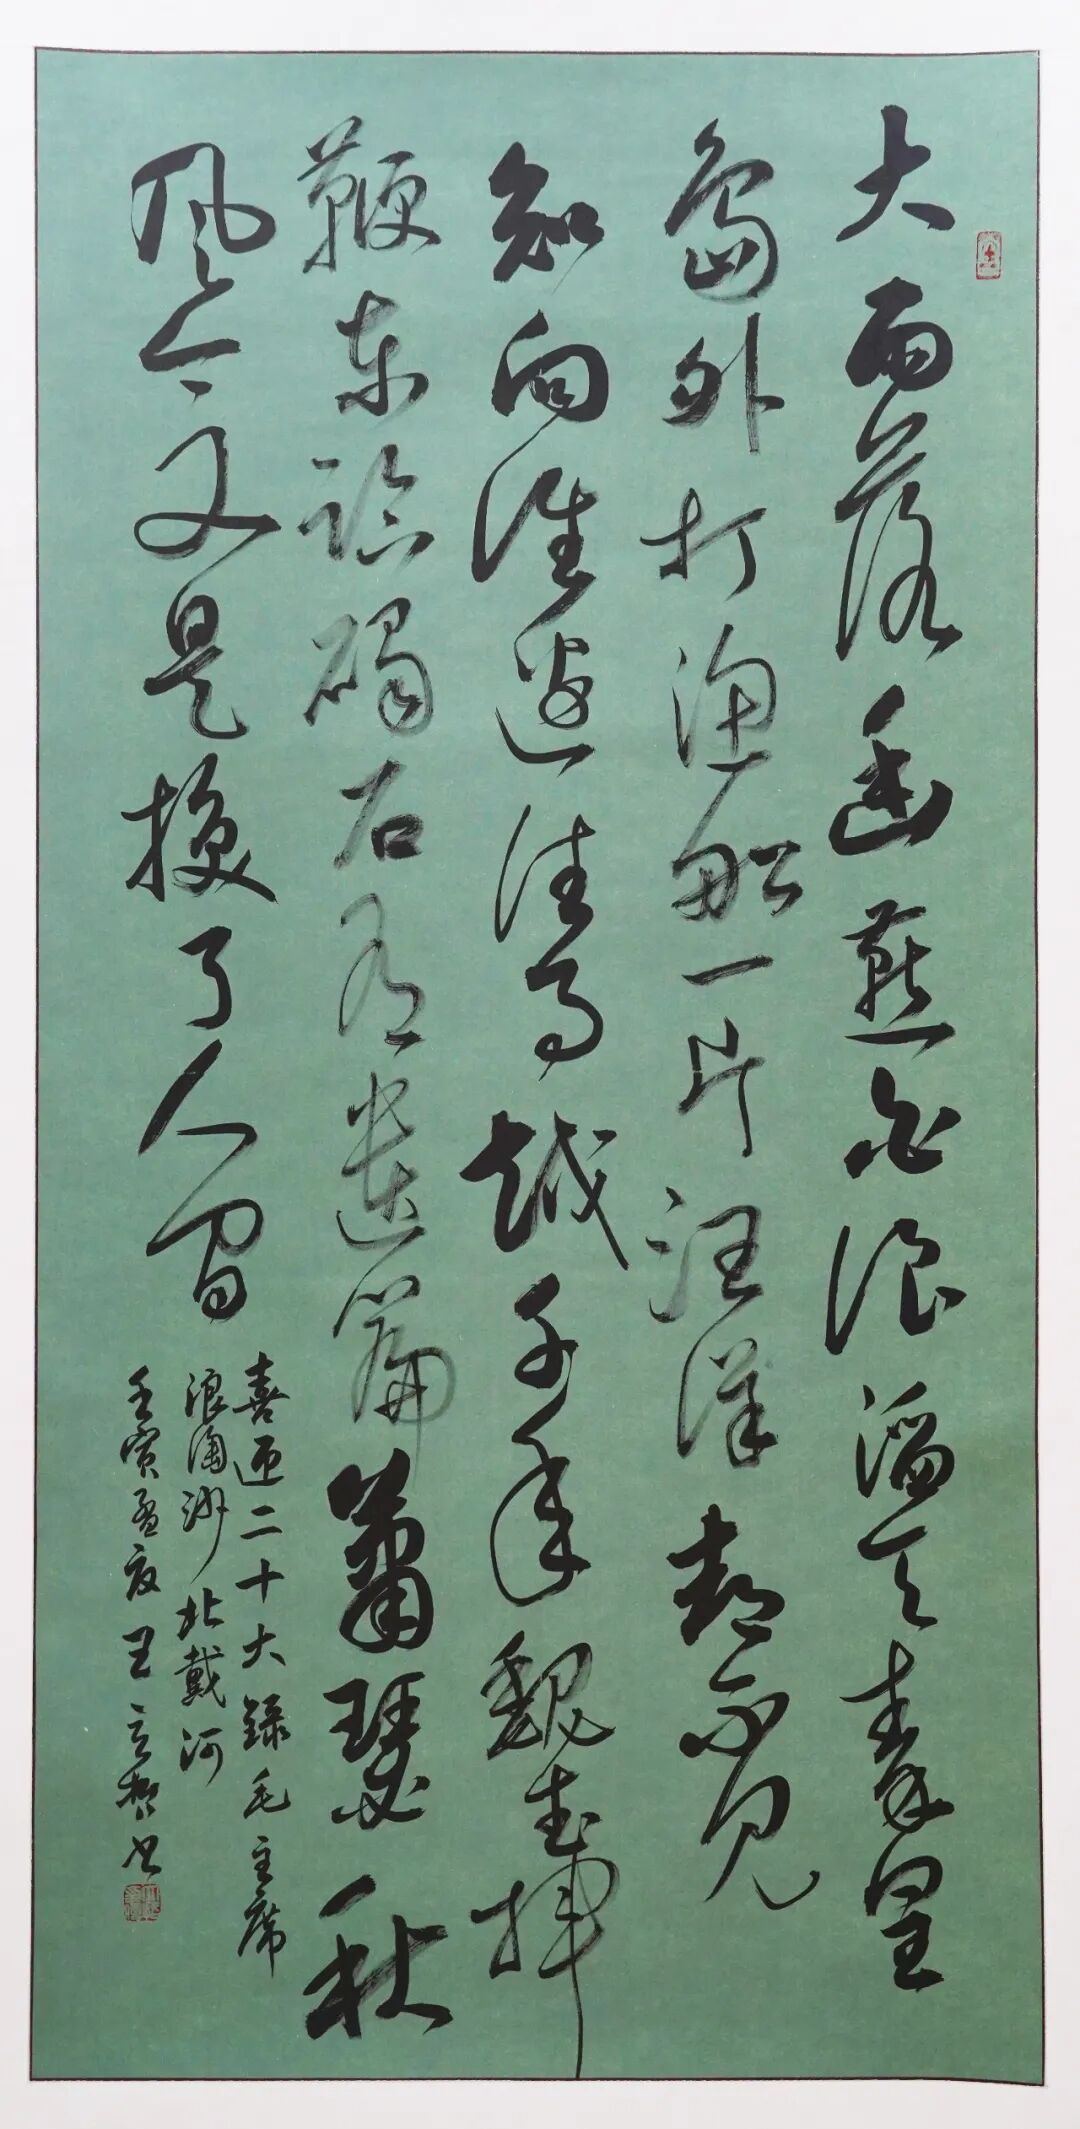 大雨落幽燕白浪滔天秦皇
岛外打渔船一片汪洋都不见
知向谁边往事越千年魏武挥
鞭东临碣石有遗篇萧瑟秋
风今又是换了人间
喜迎二十大録毛主席
浪淘沙北戴河
壬寅孟夏王立书